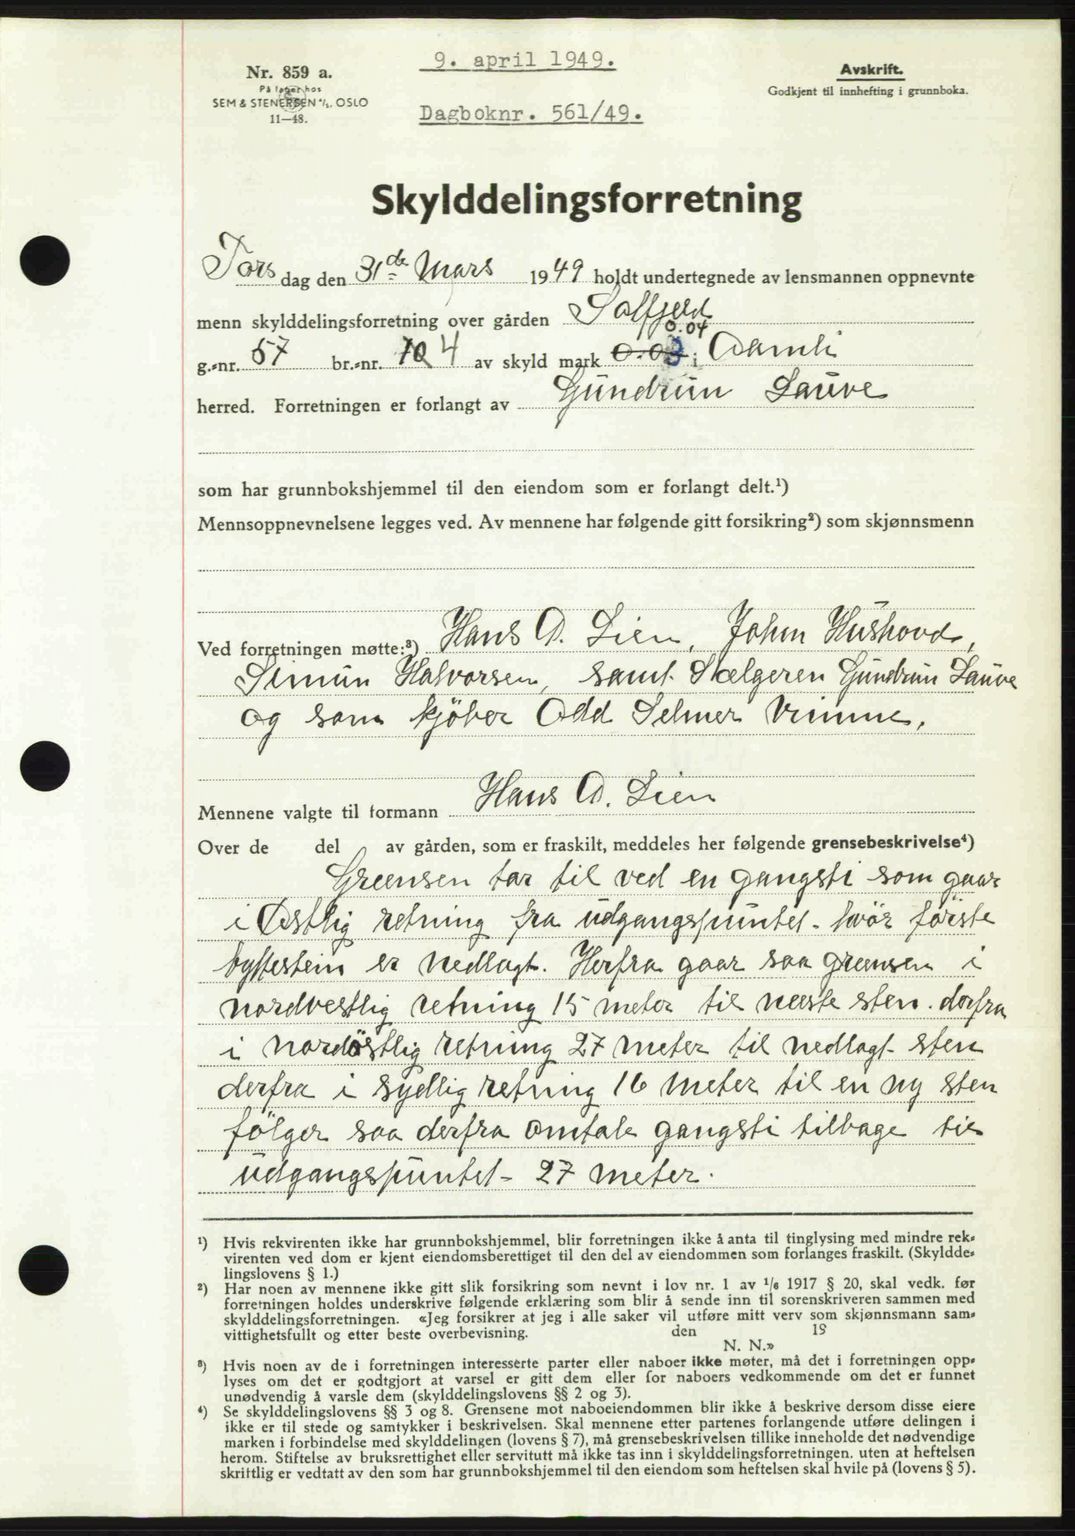 9. april 1949.
Dagboknr. 561/49.
Nr. 859 a.
På lager hos
SEM & STENERSEN A/S, OSLO
11—48.
Avskrift.
Godkjent til innhefting i grunnboka.
Skylddelingsforretning
Torsdag den 31de Mars 1949 holdt undertegnede av lensmannen oppnevnte
menn skylddelingsforretning over gården Solfjeld
0.04
g.-nr. 57 br.-nr. 104 av skyld mark 0.03 i Aamli
herred. Forretningen er forlangt av Gundrun Sauve
som har grunnbokshjemmel til den eiendom som er forlangt delt.¹)
Mennsoppnevnelsene legges ved. Av mennene har følgende gitt forsikring²) som skjønnsmenn
Ved forretningen møtte:³) Hans O. Lien, John Hushovd,
Simun Halvorsen, samt Sælgeren Gundrun Sauve
og som kjöber Odd Selmer Vimme.
Mennene valgte til formann Hans O. Lien
Over de del av gården, som er fraskilt, meddeles her følgende grensebeskrivelse⁴)
Greensen tar til ved en gangsti som gaar
i Østlig retning fra udgangspuntet - hvör förste
byttestein er nedlagt. Herfra gaar saa greensen i
nordvestlig retning 15 meter til næste sten. derfra
i nordöstlig retning 27 meter til nedlagt sten
derfra i sydlig retning 16 meter til en ny sten
fölger saa derfra omtale gangsti tilbage til
udgangspuntet - 27 meter.
¹) Hvis rekvirenten ikke har grunnbokshjemmel, blir forretningen ikke å anta til tinglysing med mindre rek-
virenten ved dom er kjent eiendomsberettiget til den del av eiendommen som forlanges fraskilt. (Skyldde-
lingslovens § 1.)
²) Har noen av mennene ikke gitt slik forsikring som nevnt i lov nr. 1 av 1/6 1917 § 20, skal vedk. før
forretningen holdes underskrive følgende erklæring som blir å sende inn til sorenskriveren sammen med
skylddelingsforretningen. «Jeg forsikrer at jeg i alle saker vil utføre mitt verv som skjønnsmann sam-
vittighetsfullt og etter beste overbevisning. den 19
N. N.»
³) Hvis noen av de i forretningen interesserte parter eller naboer ikke møter, må det i forretningen opp-
lyses om det er godtgjort at varsel er gitt dem eller for naboers vedkommende om det er funnet
unødvendig å varsle dem (skylddelingslovens §§ 2 og 3).
⁴) Se skylddelingslovens §§ 3 og 8. Grensene mot naboeiendommen blir ikke å beskrive dersom disse eiere
ikke er til stede og samtykker i beskrivelsen. Skal mennene etter partenes forlangende utføre delingen i
marken i forbindelse med skylddelingen (lovens § 7), må grensebeskrivelsen tillike inneholde det nødvendige
herom. Stiftelse av bruksrettighet eller servitutt må ikke tas inn i skylddelingsforretningen. uten at heftelsen
skriftlig er vedtatt av den som har grunnbokshjemmel til den eiendom som heftelsen skal hvile på (lovens § 5).